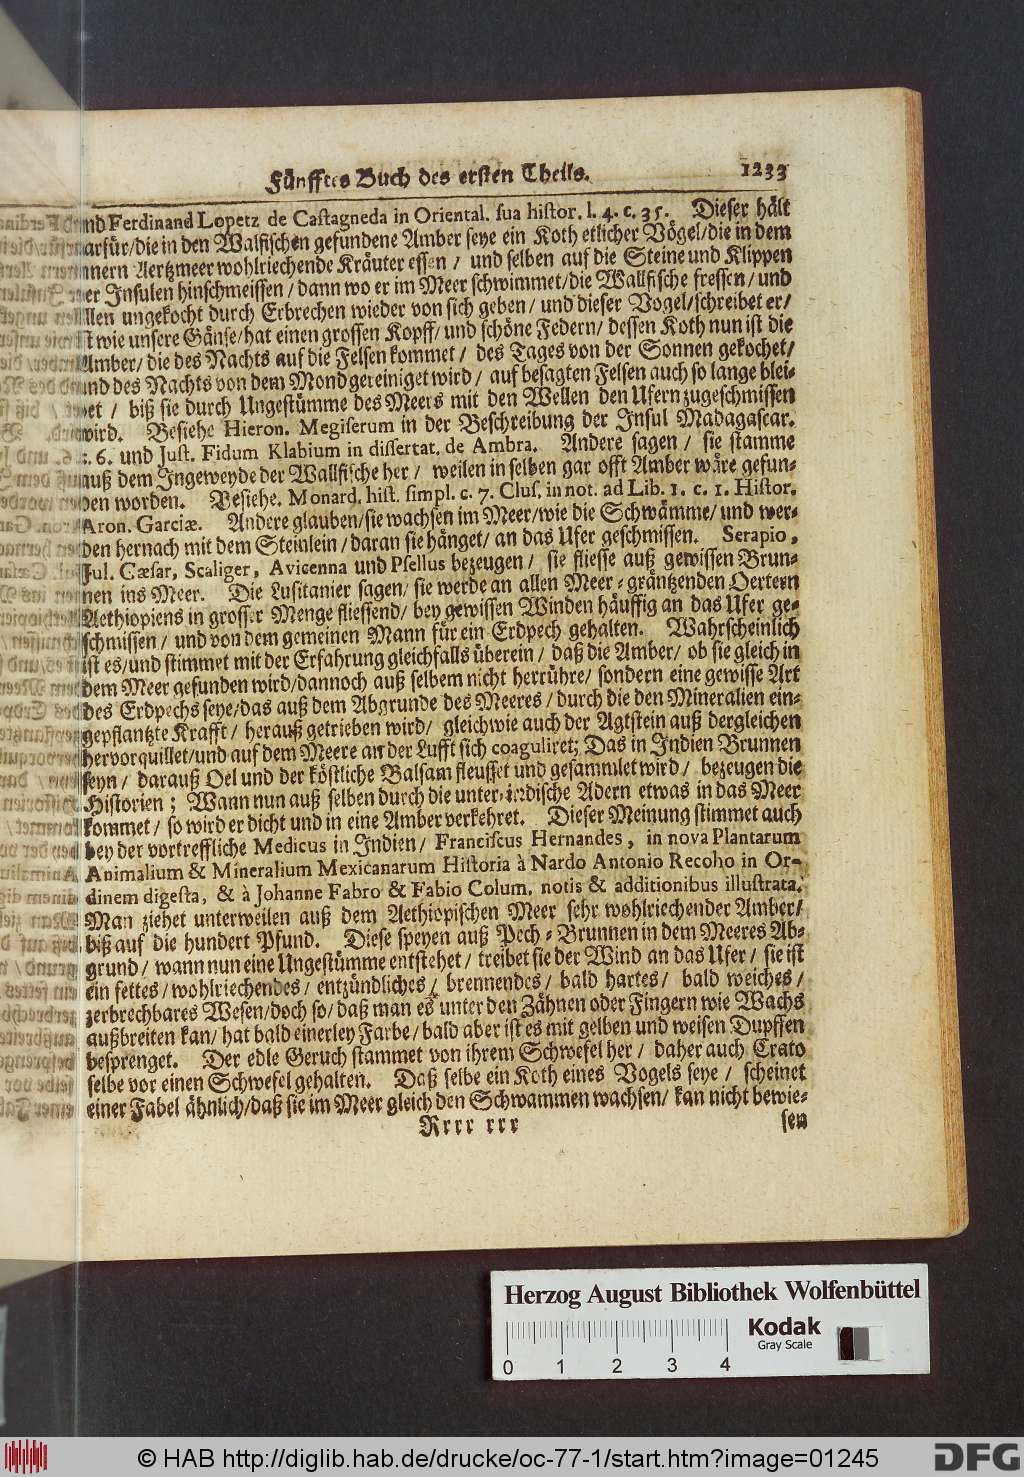 Fünfftes Buch des ersten Theils. 1233
nd Ferdinand Lopetz de Castagneda in Oriental. sua histor. l. 4. c. 35. Dieser hält
arfür/die in den Walfischen gefundene Amber seye ein Koth etlicher Vögel/die in dem
nnern Aertzmeer wohlriechende Kräuter essen / und selben auf die Steine und Klippen
er Insulen hinschmeissen / dann wo er im Meer schwimmet/die Wallfische fressen / und
llen ungekocht durch Erbrechen wieder von sich geben / und dieser Vogel/schreibet er/
st wie unsere Gänse/hat einen grossen Kopff/ und schöne Federn/ dessen Koth nun ist die
Amber/ die des Nachts auf die Felsen kommet / des Tages von der Sonnen gekochet/
nd des Nachts von dem Mond gereiniget wird / auf besagten Felsen auch so lange blei-
et / biß sie durch Ungestümme des Meers mit den Wellen den Ufern zugeschmissen
wird. Besiehe Hieron. Megiserum in der Beschreibung der Insul Madagascar.
. 6. und Just. Fidum Klabium in dissertat. de Ambra. Andere sagen / sie stamme
auß dem Ingeweyde der Wallfische her / weilen in selben gar offt Amber wäre gefun-
den worden. Besiehe. Monard. hist. simpl. c. 7. Clus. in not. ad Lib. 1. c. 1. Histor.
Aron. Garciæ. Andere glauben/sie wachsen im Meer/wie die Schwämme/ und wer-
den hernach mit dem Steinlein / daran sie hänget/ an das Ufer geschmissen. Serapio,
Jul. Cæsar, Scaliger, Avicenna und Psellus bezeugen / sie fliesse auß gewissen Brun-
nen ins Meer. Die Lusitanier sagen/ sie werde an allen Meer-gräntzenden Oertern
Aethiopiens in grosser Menge fliessend/ bey gewissen Winden häuffig an das Ufer ge-
schmissen / und von dem gemeinen Mann für ein Erdpech gehalten. Wahrscheinlich
ist es/und stimmet mit der Erfahrung gleichfalls überein / daß die Amber/ ob sie gleich in
dem Meer gefunden wird/dannoch auß selbem nicht herrühre/ sondern eine gewisse Art
des Erdpechs seye/das auß dem Abgrunde des Meeres / durch die den Mineralien ein-
gepflantzte Krafft / herauß getrieben wird / gleichwie auch der Agtstein auß dergleichen
hervor quillet/und auf dem Meere an der Lufft sich coaguliret; Das in Indien Brunnen
seyn / darauß Oel und der köstliche Balsam fleusset und gesammlet wird / bezeugen die
Historien ; Wann nun auß selben durch die unter-irrdische Adern etwas in das Meer
kommet / so wird er dicht und in eine Amber verkehret. Dieser Meinung stimmet auch
bey der vortreffliche Medicus in Indien / Franciscus Hernandes, in nova Plantarum
Animalium & Mineralium Mexicanarum Historia à Nardo Antonio Recoho in Or-
dinem digesta, & à Johanne Fabro & Fabio Colum. notis & additionibus illustrata.
Man ziehet unterweilen auß dem Aethiopischen Meer sehr wohlriechender Amber/
biß auf die hundert Pfund. Diese speyen auß Pech-Brunnen in dem Meeres Ab-
grund / wann nun eine Ungestümme entstehet / treibet sie der Wind an das Ufer / sie ist
ein fettes / wohlriechendes / entzündliches / brennendes / bald hartes / bald weiches /
zerbrechbares Wesen/doch so / daß man es unter den Zähnen oder Fingern wie Wachs
außbreiten kan / hat bald einerley Farbe / bald aber ist es mit gelben und weisen Dupffen
besprenget. Der edle Geruch stammet von ihrem Schwefel her / daher auch Crato
selbe vor einen Schwefel gehalten. Daß selbe ein Koth eines Vogels seye / scheinet
einer Fabel ähnlich/daß sie im Meer gleich den Schwammen wachsen/ kan nicht bewie-
Rrrr rrr sen
Herzog August Bibliothek Wolfenbüttel
Kodak
Gray Scale
0 1 2 3 4
© HAB http://diglib.hab.de/drucke/oc-77-1/start.htm?image=01245
DFG